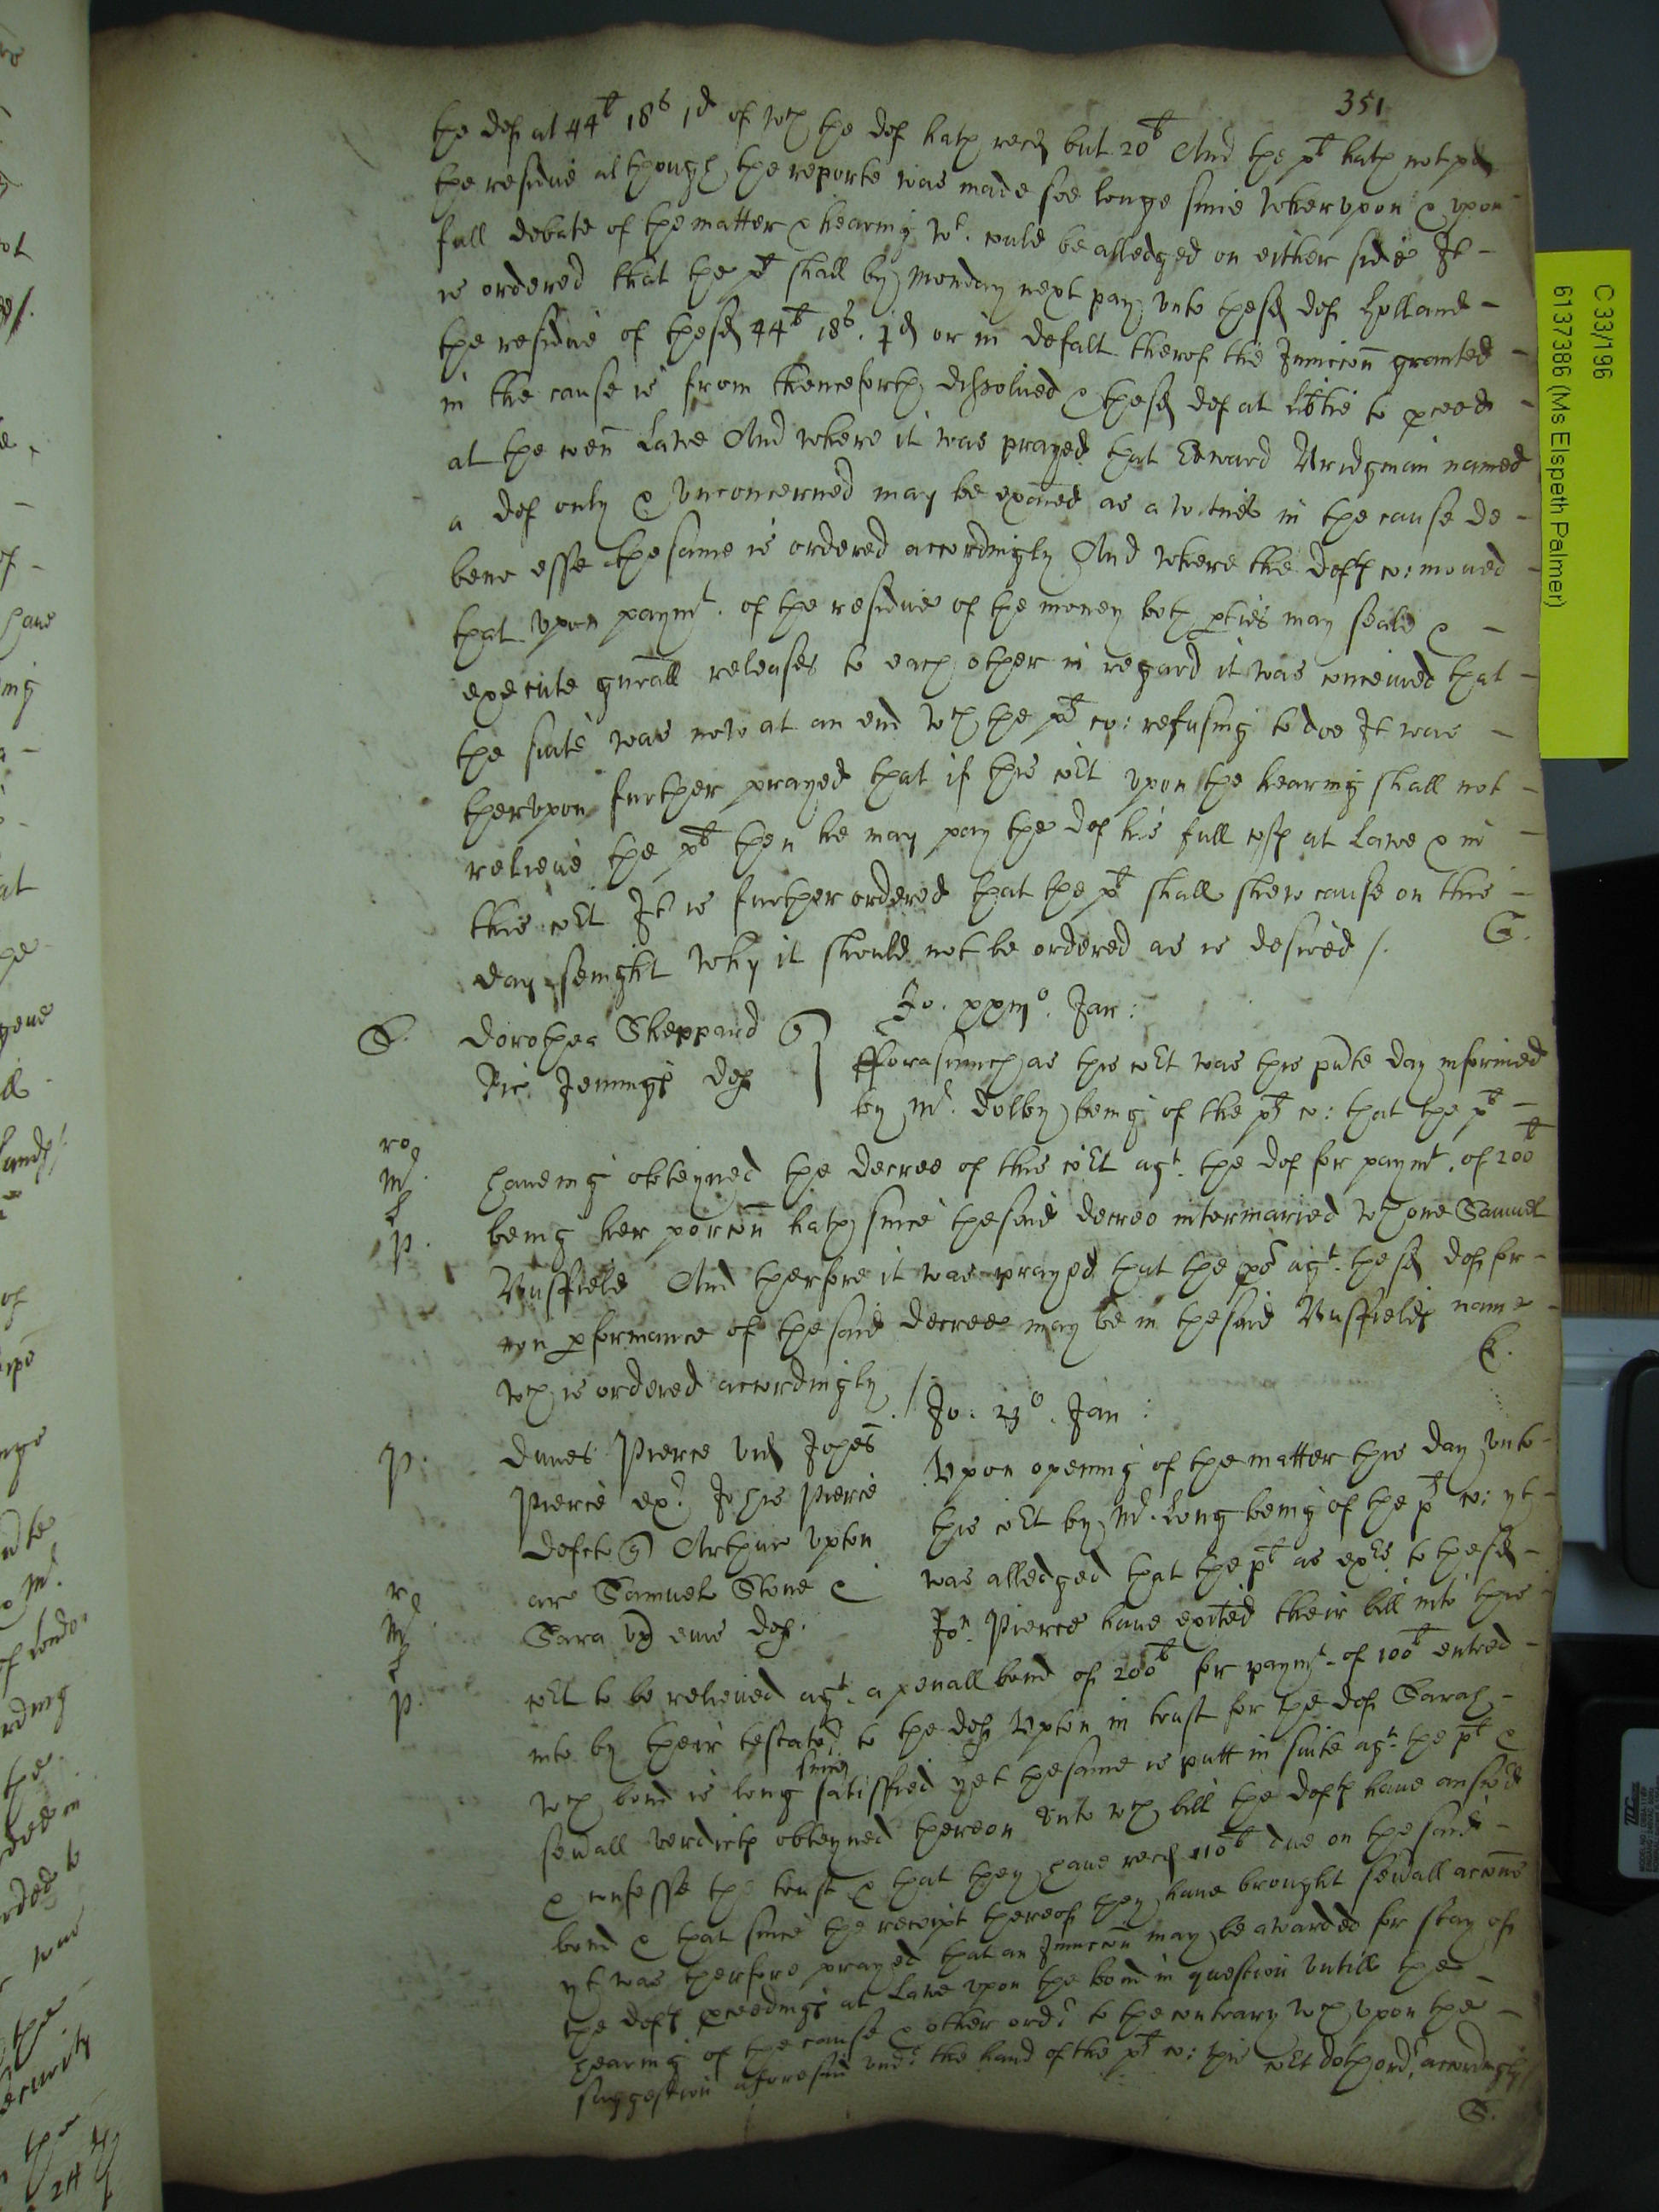 351
the def at 44li 18s 1d of wch the def hath recd but 20li And the plt hath not pd
the residue although the reporte was made soe longe since wherupon & upon
full debate of the matter & hearing wt. could be alledged on either side It
is ordered that the plt shall by Monday next pay unto the sd def Holland
the residue of the sd 44li 18s. 1d or in defalt therof the Iniuccon granted
in the cause is from thenceforth dissolued & the sd def at libtie to pceede
at the coen Lawe And where it was prayed that Edward Bridgman named
a def only & unconcerned may be exaied as a witnes in the cause de
bene esse the same is ordered accordingly And where the defts co: moued
that upon paymt. of the residue of the money both pties may seale &
execute gnrall releases to each other in regard it was conceiued that
the suite was now at an end wch the plt co: refusing to doe It was
therupon further prayed that if this coert upon the hearing shall not
relieue the plt then he may pay the def his full costs at Lawe & in
this coert It is further ordered that the plt shall shew cause on this
day senight why it should not be ordered as is desired /.
G.
Jo. xxiijo. Jan:
S. Dorothea Sheppard
Ric Jennings def
fforasmuch as this coert was this pnte day informed
by Mr. Dolby being of the plts co: that the plt
haueing obteyned the decree of this coert agt. the def for paymt. of 200li
being her porcon hath since the said decree intermaried wth one Samuel
Busffield And therfore it was prayed that the pcs agt. the sd def for
non pformance of the said decree may be in the said Busffields name
wch is ordered accordingly /
E.
Jo: 23o. Jan:
p. Pierce vid Johes
Pierce exr. Johis Pierce
defcto Arthur Upton
ar Samuel Stone &
Sara ux eius def.
Upon opening of the matter this day unto
this coert by Mr. Long being of the plts co: yt
was alledged that the plts as exrs to the sd
Jon. Pierce haue exited their bill into this
coert to be relieued agt. a penall bond of 200li for paymt. of 100li entred
into by their testator to the def Upton in trust for the def Sarah
wch bond is long since satisffied yet the same is putt in suite agt. the plts &
seuall verdicts obteyned thereon Unto wch bill the defts haue answd
& confesse the trust & that they haue recd 110li due on the said
bond & that since the receipt thereof they haue brought seuall accons
yt was therfore prayed that an Iniuccon may be awarded for stay of
the defts pceedings at Lawe upon the bond in question untill the
hearing of the cause & other ordr to the contrary wch upon the
suggestion aforesaid undr the hand of the plts co: this coert doth ordr. accordingly
S.
C 33/196
6137386 (Ms Elspeth Palmer)